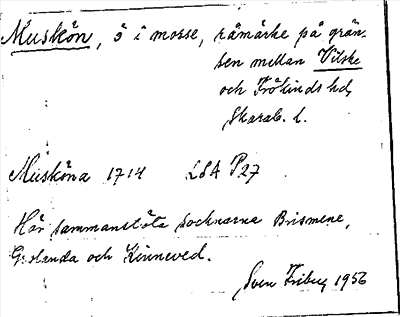 Muskön, ö i mosse, råmärke på grän-
sen mellan Vilske
och Frökinds hd,
Skarab. l.
Musköna 1714 LSA P27
Här sammanstöta socknarna Brismene,
Grolanda och Kinneved.
Sven Friberg 1956